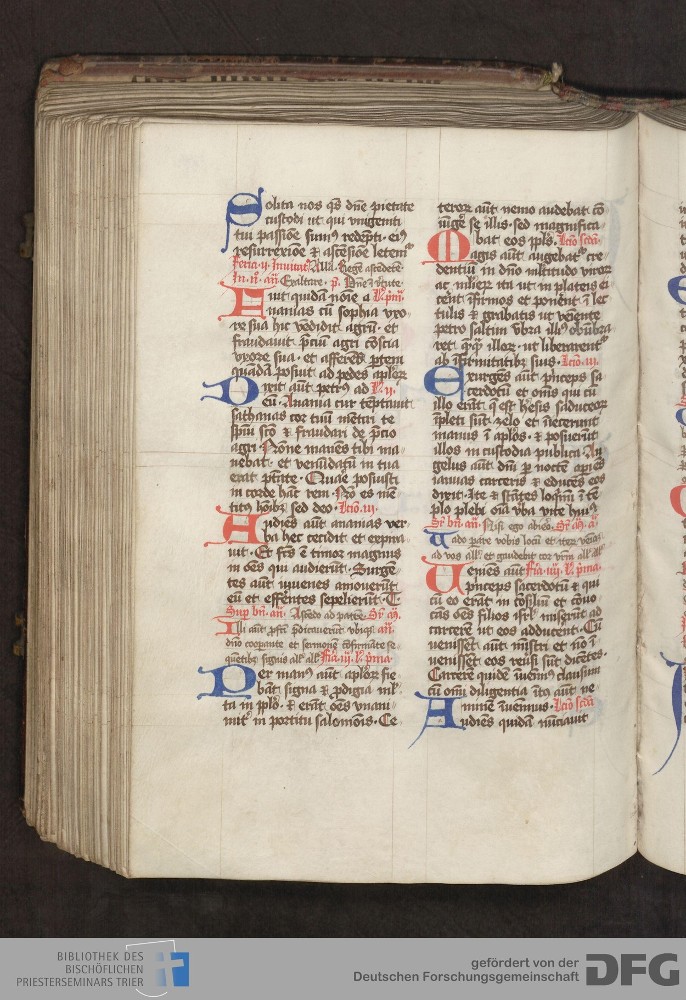 Solita nos qs dne pietate
custodi ut qui unigeniti
tui passione sumus redempti eius
resurrexione et ascensione letemur
Feria ii Inuitat Alla Regem ascendentem
In nor an Exaltare
Vir quidam nomine a L prima
nanias cum sophia uxo
re sua hic vendidit agrum et
fraudauit precium agri conscia
uxore sua et afferens partem
quandam posuit ad pedes aplorum
Dixit aut petrus ad L ii
eum Anania cur temptauit
sathanas cor tuum mentiri te
spiritui sco et fraudari de precio
agri Nonne manens tibi ma
nebat et venundatum in tua
erat ptate Quare posuisti
in corde hanc rem Non es men
titus hoibus sed deo Lectio iii
Audiens aut ananias ver
ba hec cecidit et expira
uit Et factus est timor magnus
in oes qui audierunt Surgen
tes aut iuuenes amouerunt
eum et efferentes sepelierunt
Sup bn an Ascendo ad patrem
Illi aut profecti predicauerunt ubique an
dno cooperante et sermonem confirmante se
quentibus signis alla alla Feria iii L prima
Per manus aut aplorum fie
bant signa et prodigia mul
ta in pplo et erant oes unani
miter in porticu salomonis Ce
terorum aut nemo audebat con
iungere se illis sed magnifica
bat eos pplus Lectio scda
Magis aut augebatur cre
dentium in dno multitudo viror
ac mulierum ita ut in plateis ei
cerent infirmos et ponerent in lec
tulis et grabatis ut veniente
petro saltim umbra illius obumbra
ret quemquam illorum ut liberarentur
ab infirmitatibus suis Lectio iii
Exurgens aut princeps sa
cerdotum et omnis qui cum
illo erant que est heresis saduceorum
impleti sunt zelo et iniecerunt
manus in aplos et posuerunt
illos in custodia publica An
gelus aut dni per noctem aperiens
ianuas carceris et educens eos
dixit Ite et stantes loquimini in tem
plo plebi omnia verba vite huius
Sr bn an Nisi ego abiero
Vado parare vobis locum et iterum venio
ad vos alla et gaudebit cor vrm alla alla
Veniens aut Feria iiii L prima
princeps sacerdotum et qui
cum eo erant in consilium et conuo
cans oes filios isrl miserunt ad
carcerem ut eos adducerent Cum
venissent aut ministri et non in
uenissent eos reuersi sunt dicentes
Carcerem quidem inuenimus clausum
cum omni diligentia intus aut ne
minem inuenimus Lectio scda
Audiens quidam nunciauit
BIBLIOTHEK DES
BISCHÖFLICHEN
PRIESTERSEMINARS TRIER
gefördert von der
Deutschen Forschungsgemeinschaft
DFG